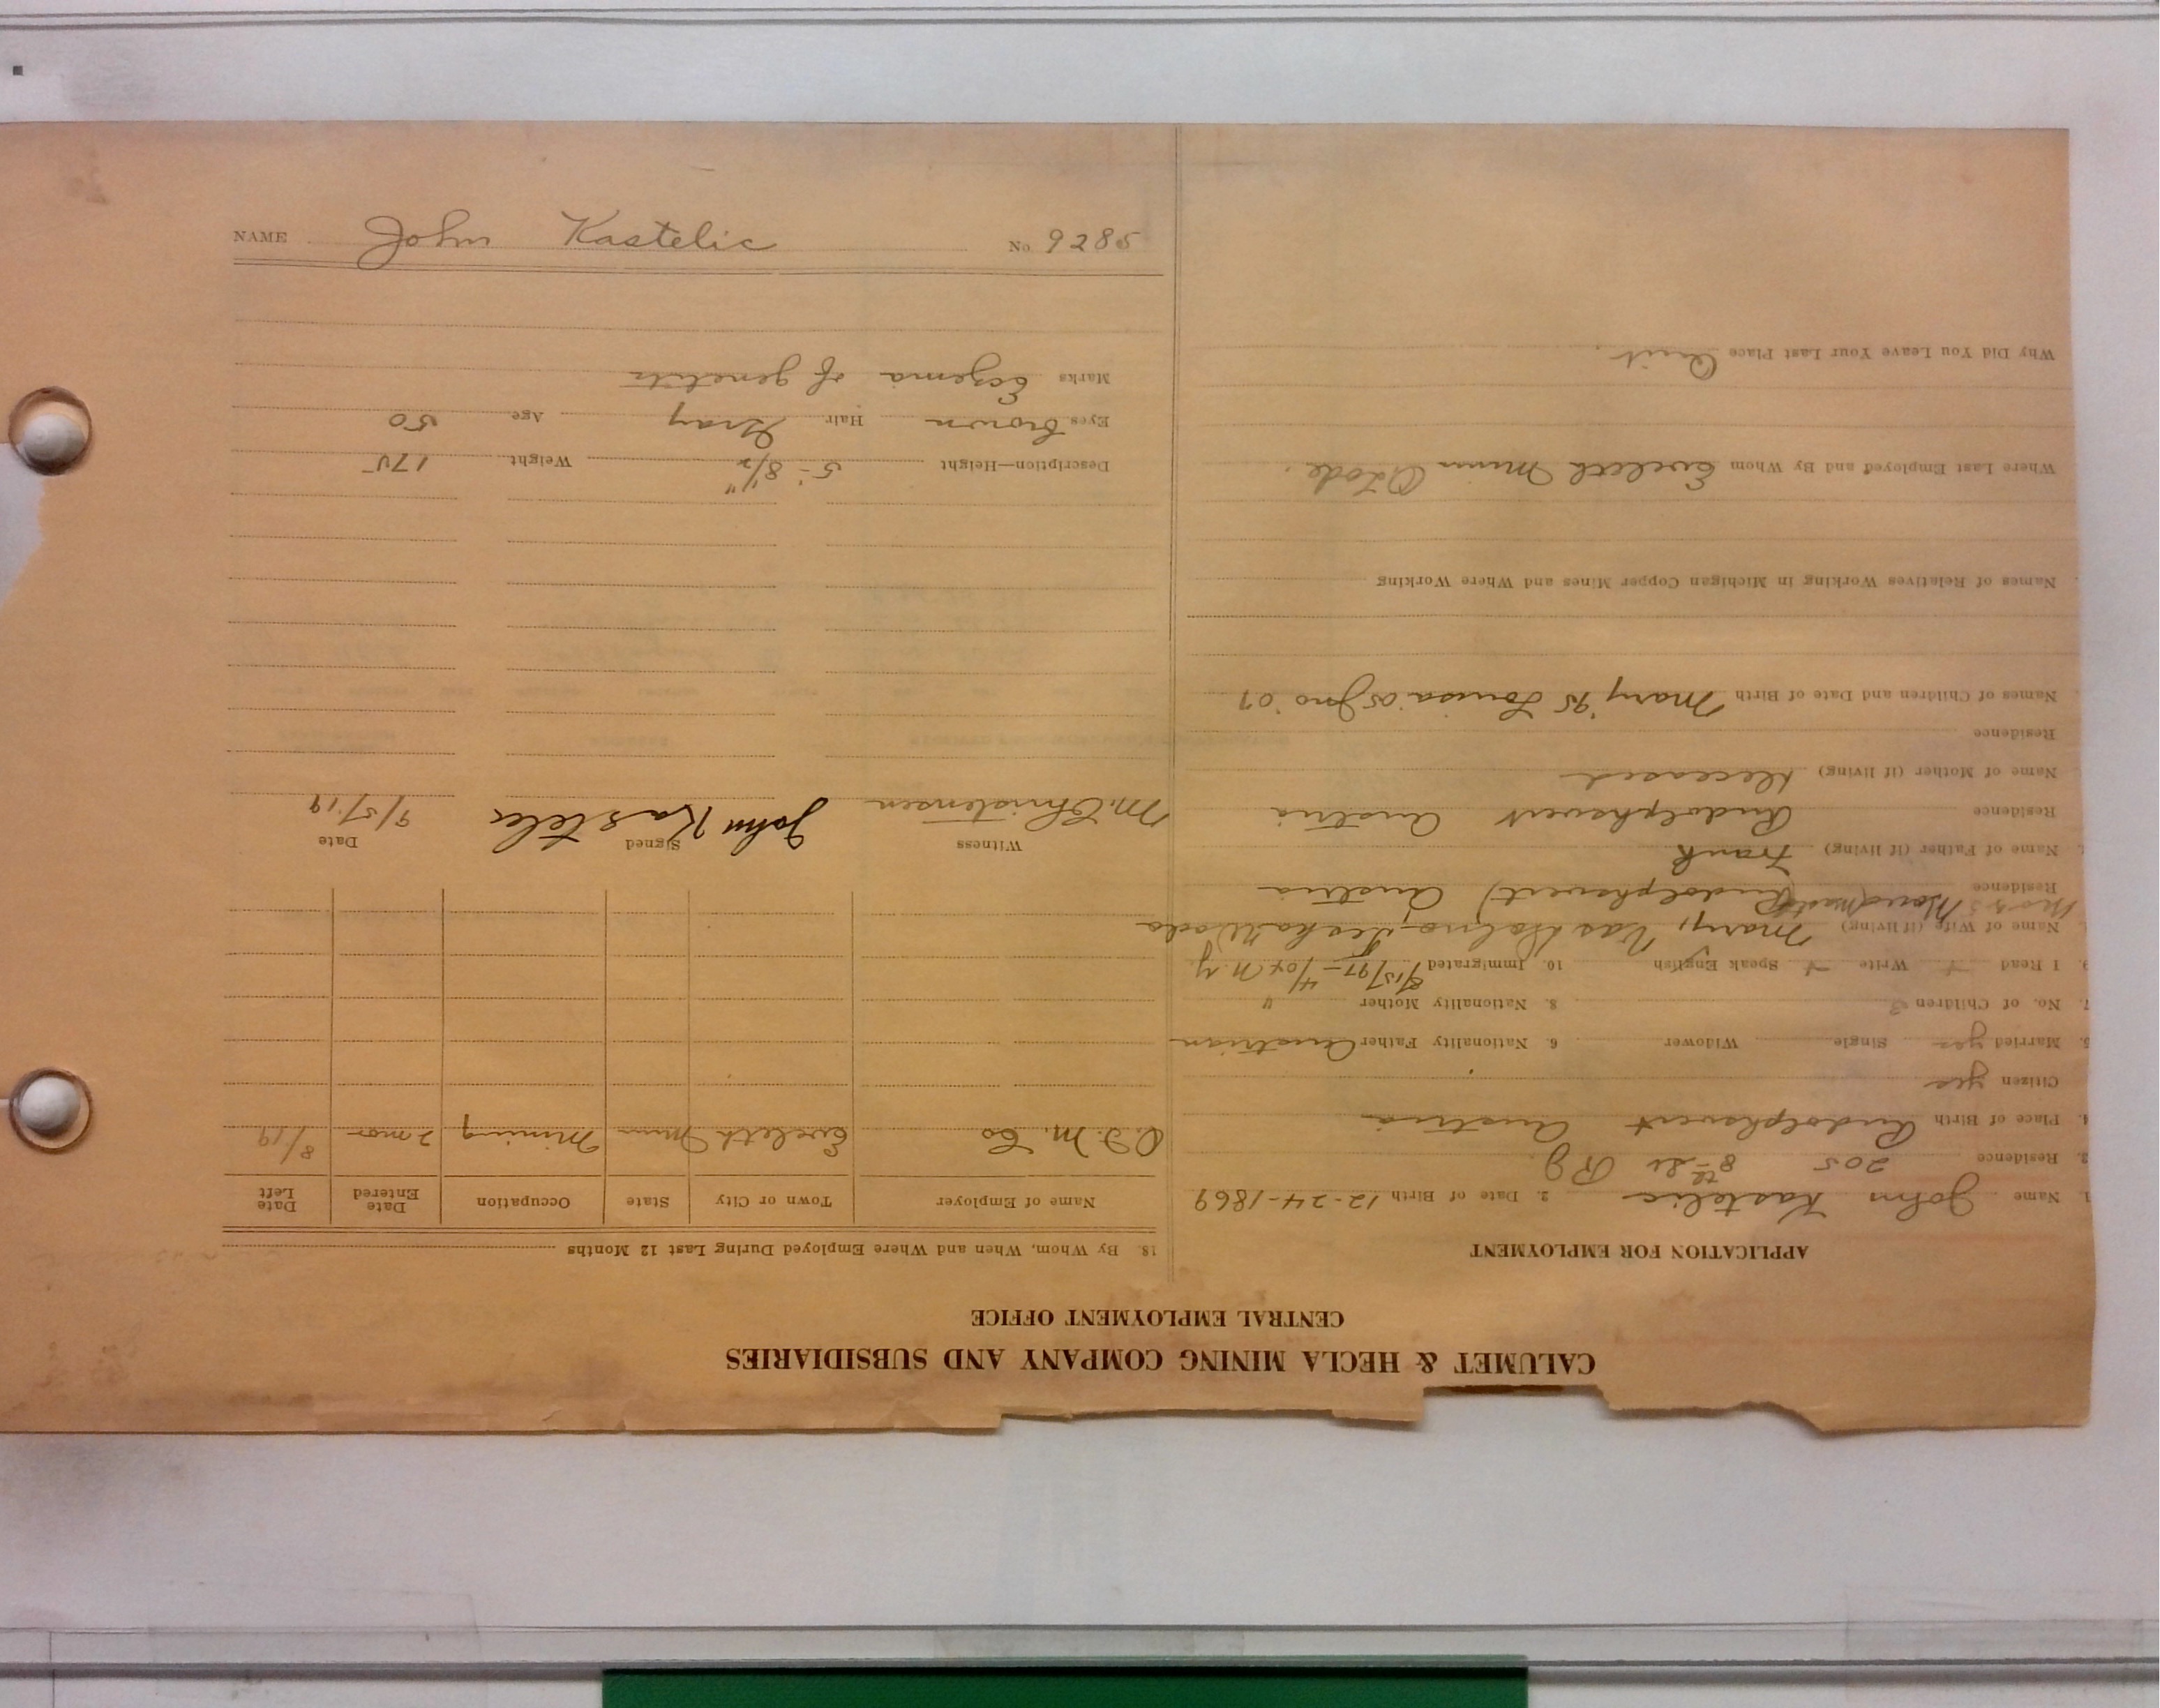 CALUMET & HECLA MINING COMPANY AND SUBSIDIARIES
CENTRAL EMPLOYMENT OFFICE
APPLICATION FOR EMPLOYMENT
1. Name John Kastelic 2. Date of Birth 12-24-1869
3. Residence 205 8th St
4. Place of Birth Rudolphswert Austria
Citizen yes
5. Married yes Single Widower 6. Nationality Father Austrian
7. No. of Children 3 8. Nationality Mother "
9. I Read Write Speak English 10. Immigrated N.Y.
Name of Wife (if living) Mary,
Residence Rudolphswert) Austria
Name of Father (if living) Frank
Residence Rudolphswert Austria
Name of Mother (if living) Deceased
Residence
Names of Children and Date of Birth Mary '95 Louisa '05 Jno '07
Names of Relatives Working in Michigan Copper Mines and Where Working
Where Last Employed and By Whom Eveleth Minn
Why Did You Leave Your Last Place Quit.
18. By Whom, When and Where Employed During Last 12 Months
Name of Employer Town or City State Occupation Date Entered Date Left
O.I.M. Co Eveleth Minn Mining 2 mos 8/19
Witness Signed Date
M. Christensen John Kastelic 9/5/19
Description—Height 5'- 8 1/2" Weight 175
Eyes brown Hair Gray Age 50
Marks Eczema of genitils
NAME John Kastelic No. 9285